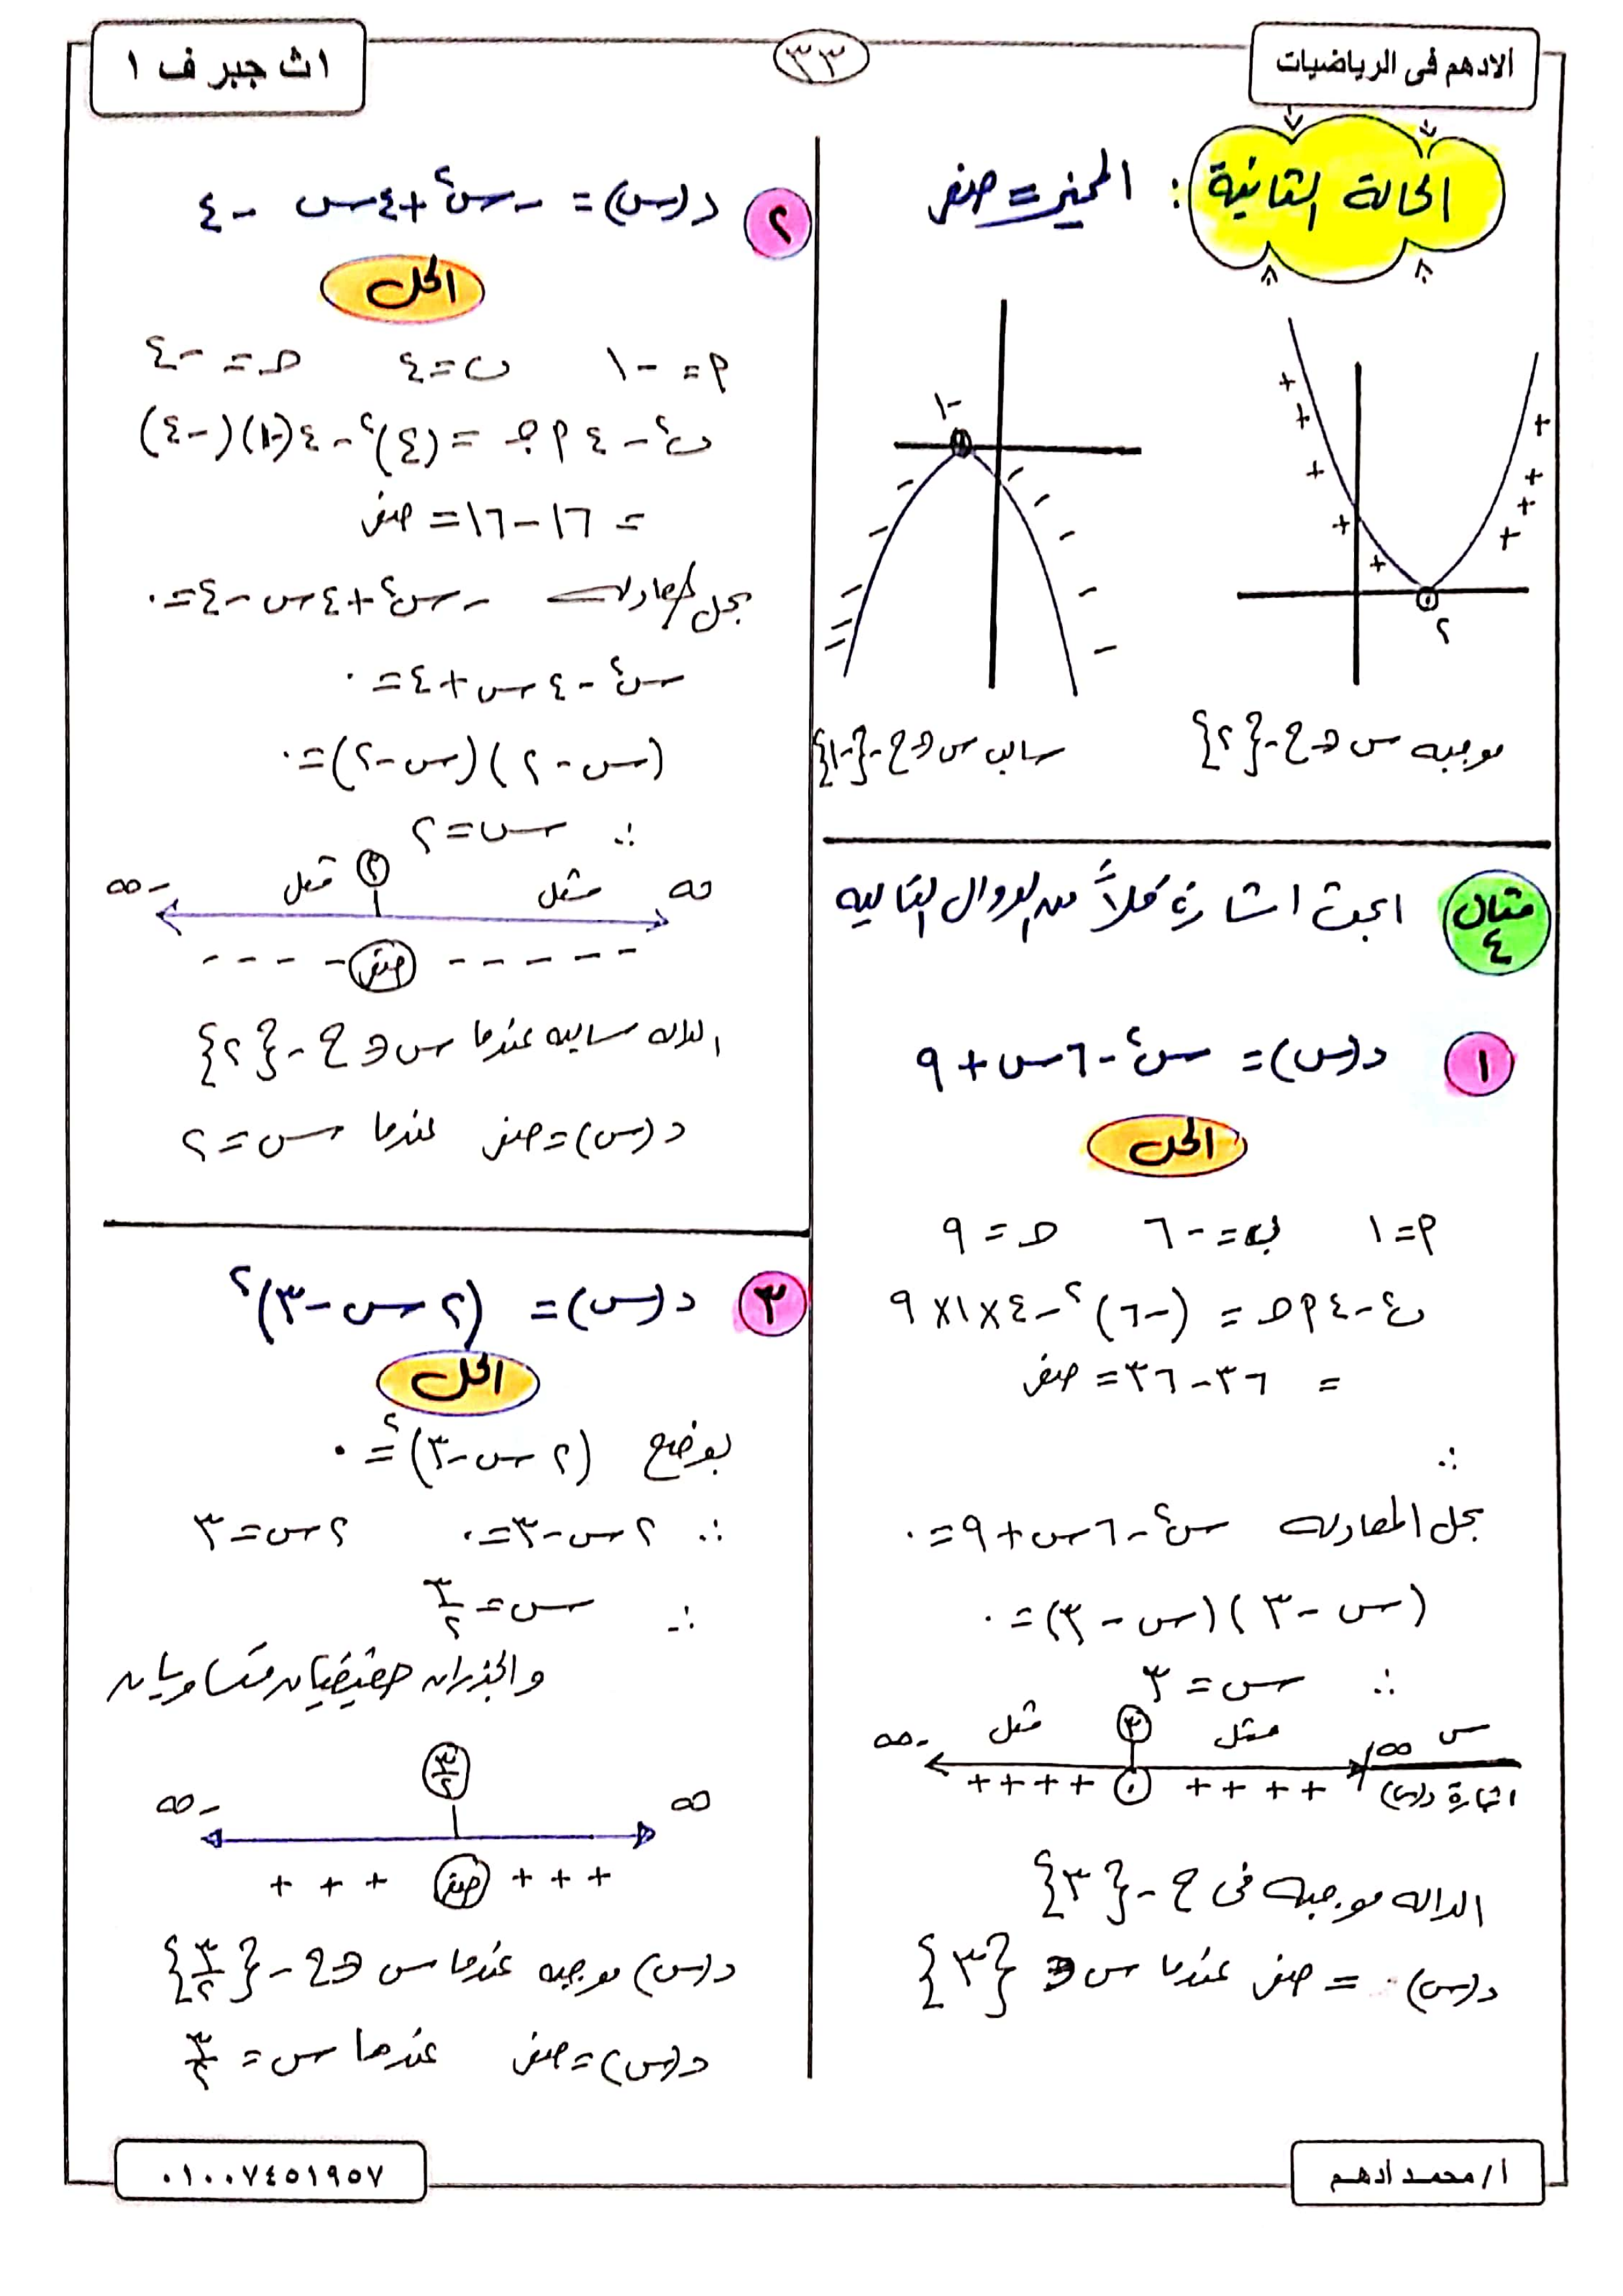 الادهم فى الرياضيات
٣٣
١ث جبر ف ١
الحالة الثانية : المميز = صفر
٢
-١
موجبه س ∈ ح - {٢}
سالب س ∈ ح - {-١}
مثال ٤
ابحث اشارة كلاً من الدوال التاليه
١ د(س) = س² - ٦س + ٩
الحل
م = ١ ب = -٦ حـ = ٩
ب² - ٤ م حـ = (-٦)² - ٤ × ١ × ٩
= ٣٦ - ٣٦ = صفر
∴
بحل المعادله س² - ٦س + ٩ = ٠
(س - ٣)(س - ٣) = ٠
∴ س = ٣
س ∞ مثل ٣ مثل -∞
اشارة د(س) + + + + ٠ + + + +
الداله موجبه فى ح - {٣}
د(س) = صفر عندما س ∈ {٣}
٢ د(س) = -س² + ٤س - ٤
الحل
م = -١ ب = ٤ حـ = -٤
ب² - ٤ م جـ = (٤)² - ٤(-١)(-٤)
= ١٦ - ١٦ = صفر
بحل المعادله -س² + ٤س - ٤ = ٠
س² - ٤س + ٤ = ٠
(س - ٢)(س - ٢) = ٠
∴ س = ٢
∞ مثل ٢ مثل -∞
- - - - - صفر - - - -
الداله سالبه عندما س ∈ ح - {٢}
د(س) = صفر عندما س = ٢
٣ د(س) = (٢س - ٣)²
الحل
بوضع (٢س - ٣)² = ٠
∴ ٢س - ٣ = ٠ ٢س = ٣
∴ س = ٣/٢
والجذران حقيقيان متساويان
∞ ٣/٢ -∞
+ + + صفر + + +
د(س) موجبه عندما س ∈ ح - {٣/٢}
د(س) = صفر عندما س = ٣/٢
أ/محمد ادهم
٠١٠٠٧٤٥١٩٥٧